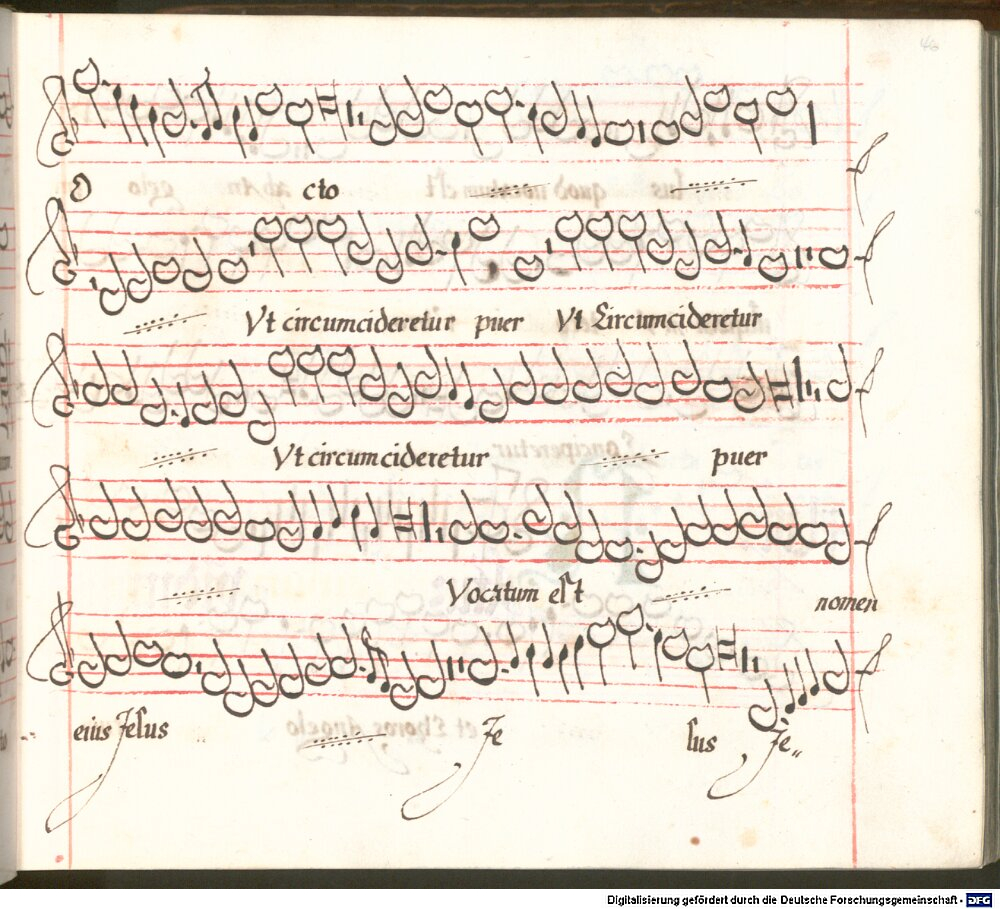 46
O cto
Vt circumcideretur puer Vt Circumcideretur
Vt circumcideretur puer
Vocatum est nomen
eius Jesus Je sus Je„
Digitalisierung gefördert durch die Deutsche Forschungsgemeinschaft - DFG